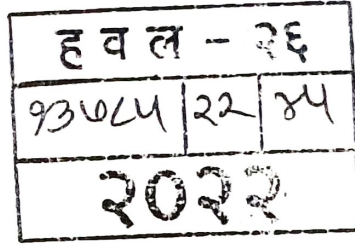 ह व ल - २६
१३७८५ | २२ | ४५
२०२२